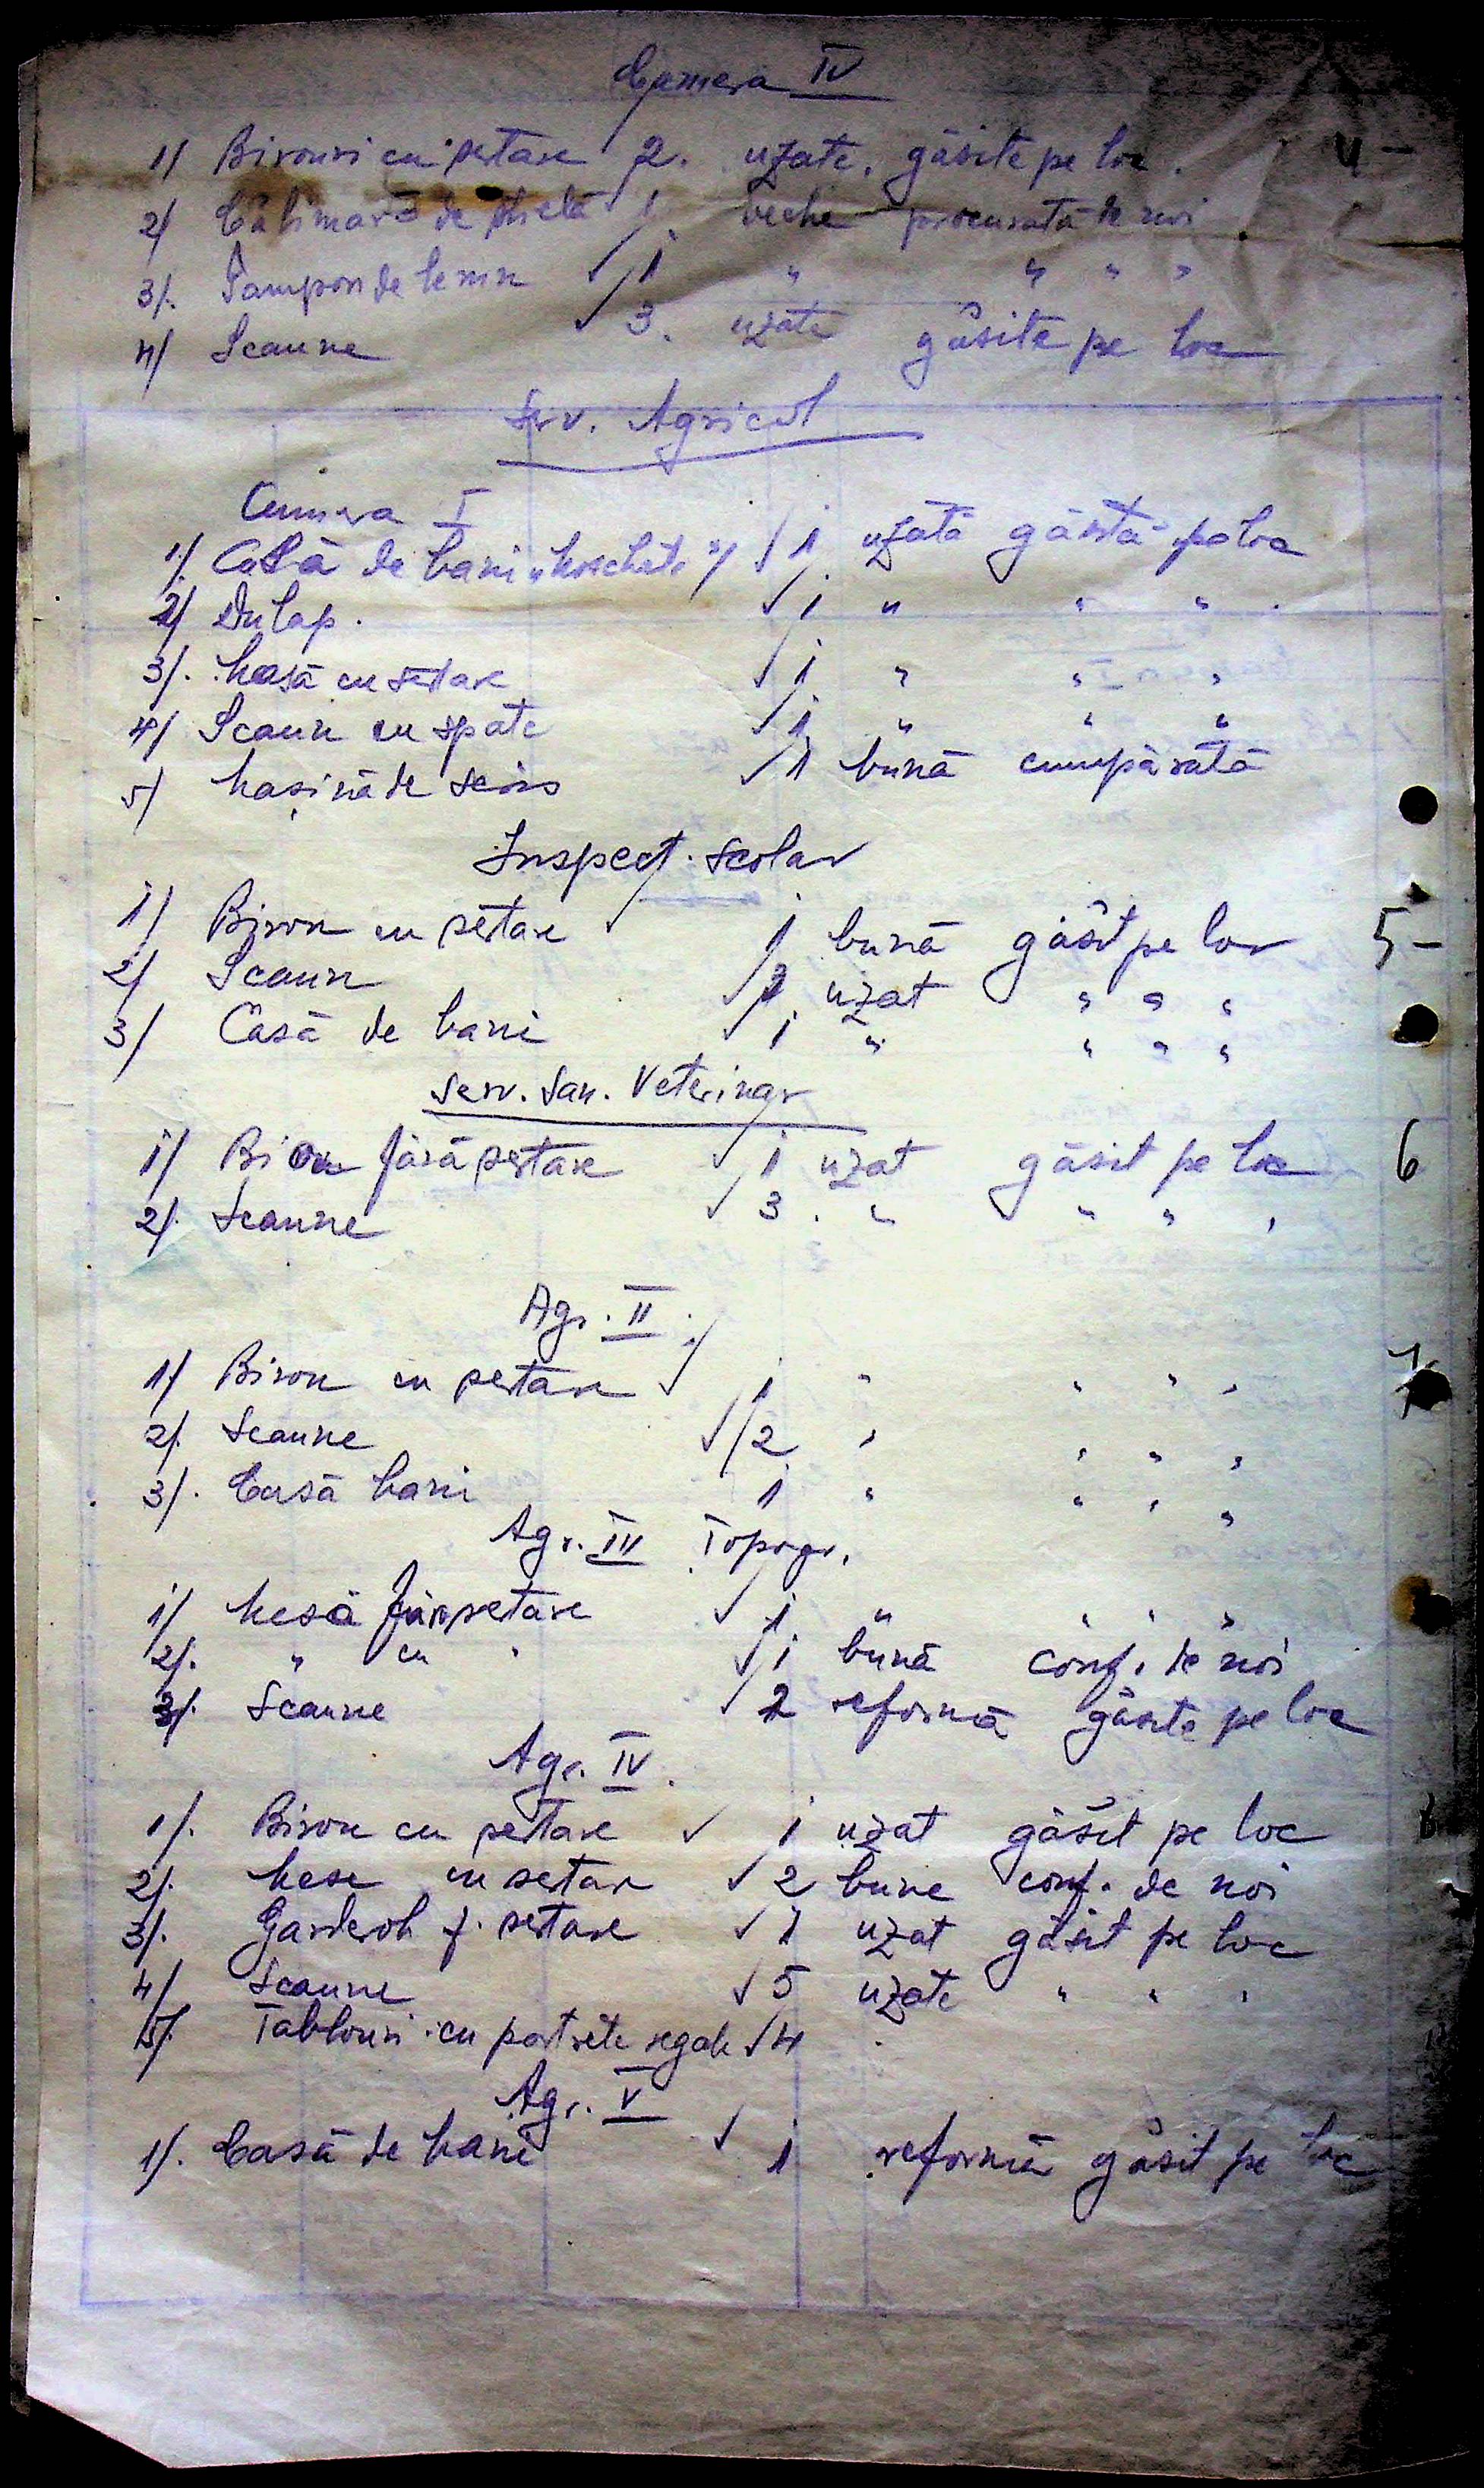 Camera IV
1) Birouri cu sertare 2. uzate. găsite pe loc. 4 -
2) Călimară de sticlă 1. veche procurată de noi
3). Tampon de lemn 1 " " " "
4) Scaune 3. uzate găsite pe loc
Serv. Agricol
Camera I
1) Casă de bani 1 uzată găsită pe loc
2) Dulap. 1 " " "
3). Masă cu sertare 1 " " "
4) Scaun cu spate 1 " " "
5) Mașină de scris 1 bună cumpărată
Inspect. Scolar
1) Birou cu sertare 1 bună găsit pe loc 5 -
2) Scaun uzat " " "
3) Casă de bani 1 " " " "
Serv. San. Veterinar
1) Birou fără sertare 1 uzat găsit pe loc 6
2). Scaune 3. " " " "
Agr. II
1) Birou cu sertare 1 " " " " 7
2). Scaune 2 " " " "
3). Casă bani 1 " " " "
Agr. III Topogr.
1) Mesă fără sertare 1 " " " "
2). " cu " 1 bună conf. de noi
3). Scaune 2 reformă găsite pe loc
Agr. IV.
1). Birou cu sertare 1 uzat găsit pe loc
2). Mese cu sertar 2 bune conf. de noi
3). Garderob f. sertare 1 uzat găsit pe loc
4) Scaune 5 uzate " " "
5). Tablouri cu portrete regale 4
Agr. V
1). Casă de bani 1 reformă găsit pe loc